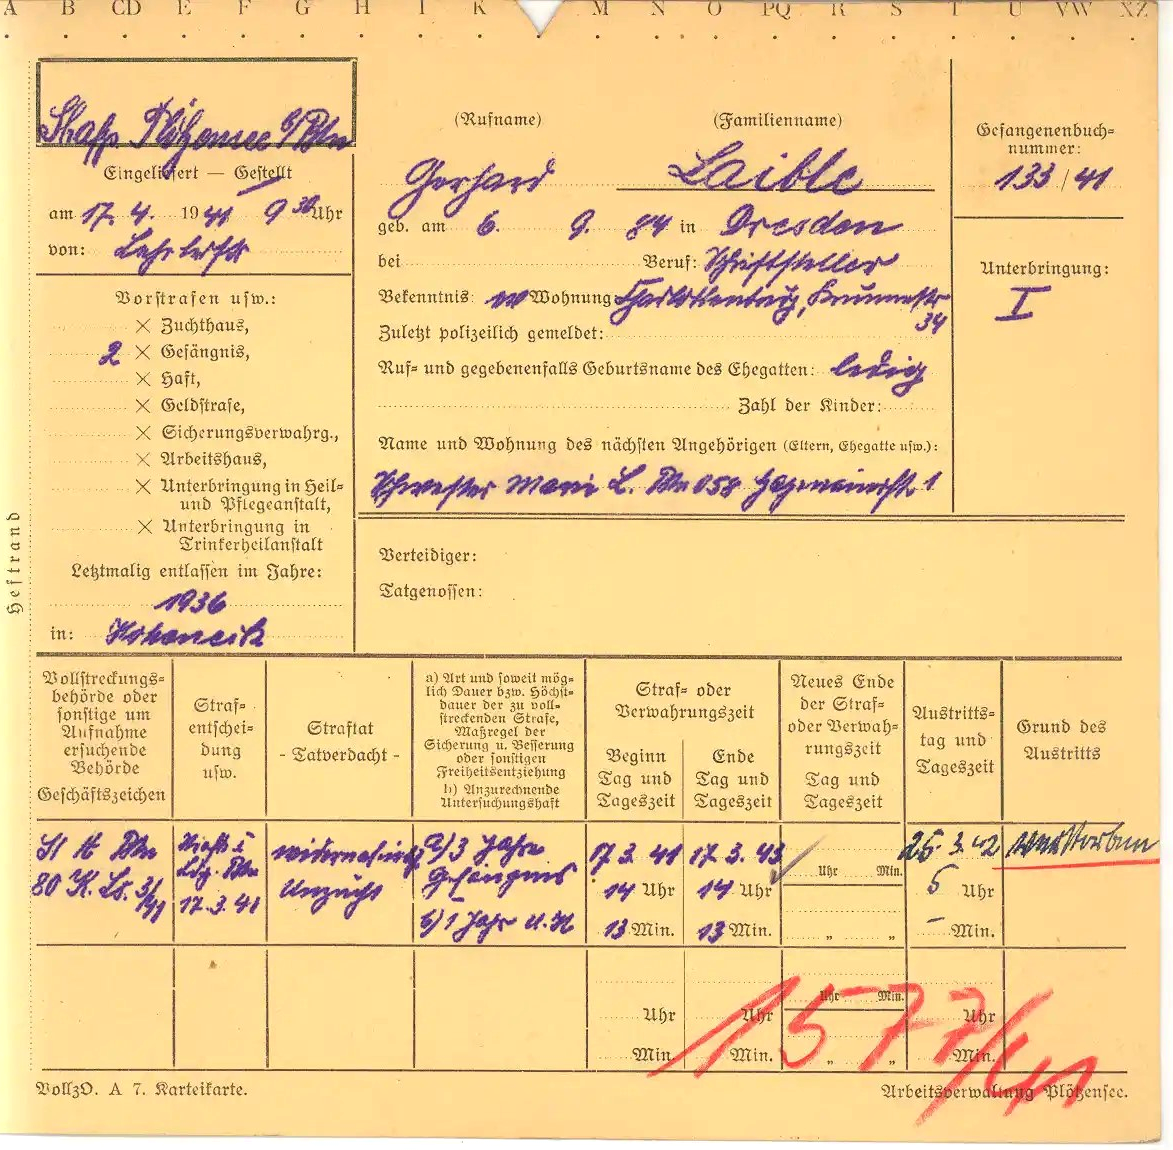 A B CD E F G H I K M N O PQ R S T U VW XZ
Plötzensee
Eingeliefert — Gestellt
am 17. 4. 1941 9 30 Uhr
von: Lehrterstr
Vorstrafen usw.:
× Zuchthaus,
2 × Gefängnis,
× Haft,
× Geldstrafe,
× Sicherungsverwahrg.,
× Arbeitshaus,
× Unterbringung in Heil=
und Pflegeanstalt,
× Unterbringung in
Trinkerheilanstalt
Letztmalig entlassen im Jahre:
1936
in:
Heftrand
(Rufname) (Familienname)
Gerhard Laible
geb. am 6. 9. 84 in Dresden
bei Beruf: Schriftsteller
Bekenntnis: Wohnung Charlottenburg, Krummestr
34
Zuletzt polizeilich gemeldet:
Ruf= und gegebenenfalls Geburtsname des Ehegatten: ledig
Zahl der Kinder:
Name und Wohnung des nächsten Angehörigen (Eltern, Ehegatte usw.):
Schwester Marie L. Bln O 58 1
Gefangenenbuch=
nummer:
133/41
Unterbringung:
I
Verteidiger:
Tatgenossen:
Vollstreckungs=
behörde oder
sonstige um
Aufnahme
ersuchende
Behörde
Geschäftszeichen
Straf=
entschei=
dung
usw.
Straftat
- Tatverdacht -
a) Art und soweit mög=
lich Dauer bzw. Höchst=
dauer der zu voll=
streckenden Strafe,
Maßregel der
Sicherung u. Besserung
oder sonstigen
Freiheitsentziehung
b) Anzurechnende
Untersuchungshaft
Straf= oder
Verwahrungszeit
Beginn
Tag und
Tageszeit
Ende
Tag und
Tageszeit
Neues Ende
der Straf=
oder Verwah=
rungszeit
Tag und
Tageszeit
Austritts=
tag und
Tageszeit
Grund des
Austritts
St A Bln
80 K. Ls. 3/41
Ldg. Bln
17.3.41
Unzucht
a) 3 Jahre
Gefängnis
b) 1 Jahr U.H
17 3. 41
14 Uhr
13 Min.
17. 3. 43
14 Uhr
13 Min.
Uhr Min.
„ „
25 3. 42
5 Uhr
– Min.
verstorben
Uhr
Min.
Uhr
Min.
Uhr Min.
„ „
Uhr
Min.
1577/41
VollzO. A 7. Karteikarte.
Arbeitsverwaltung Plötzensee.